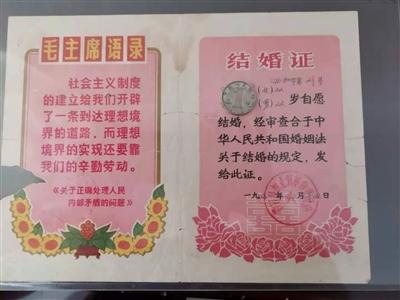 毛主席语录
社会主义制度
的建立给我们开辟
了一条到达理想境
界的道路，而理想
境界的实现还要靠
我们的辛勤劳动。
《关于正确处理人民
内部矛盾的问题》
结婚证
字第
(女)
(男) 岁自愿
结婚，经审查合于中
华人民共和国婚姻法
关于结婚的规定，发
给此证。
一九 年 月 日